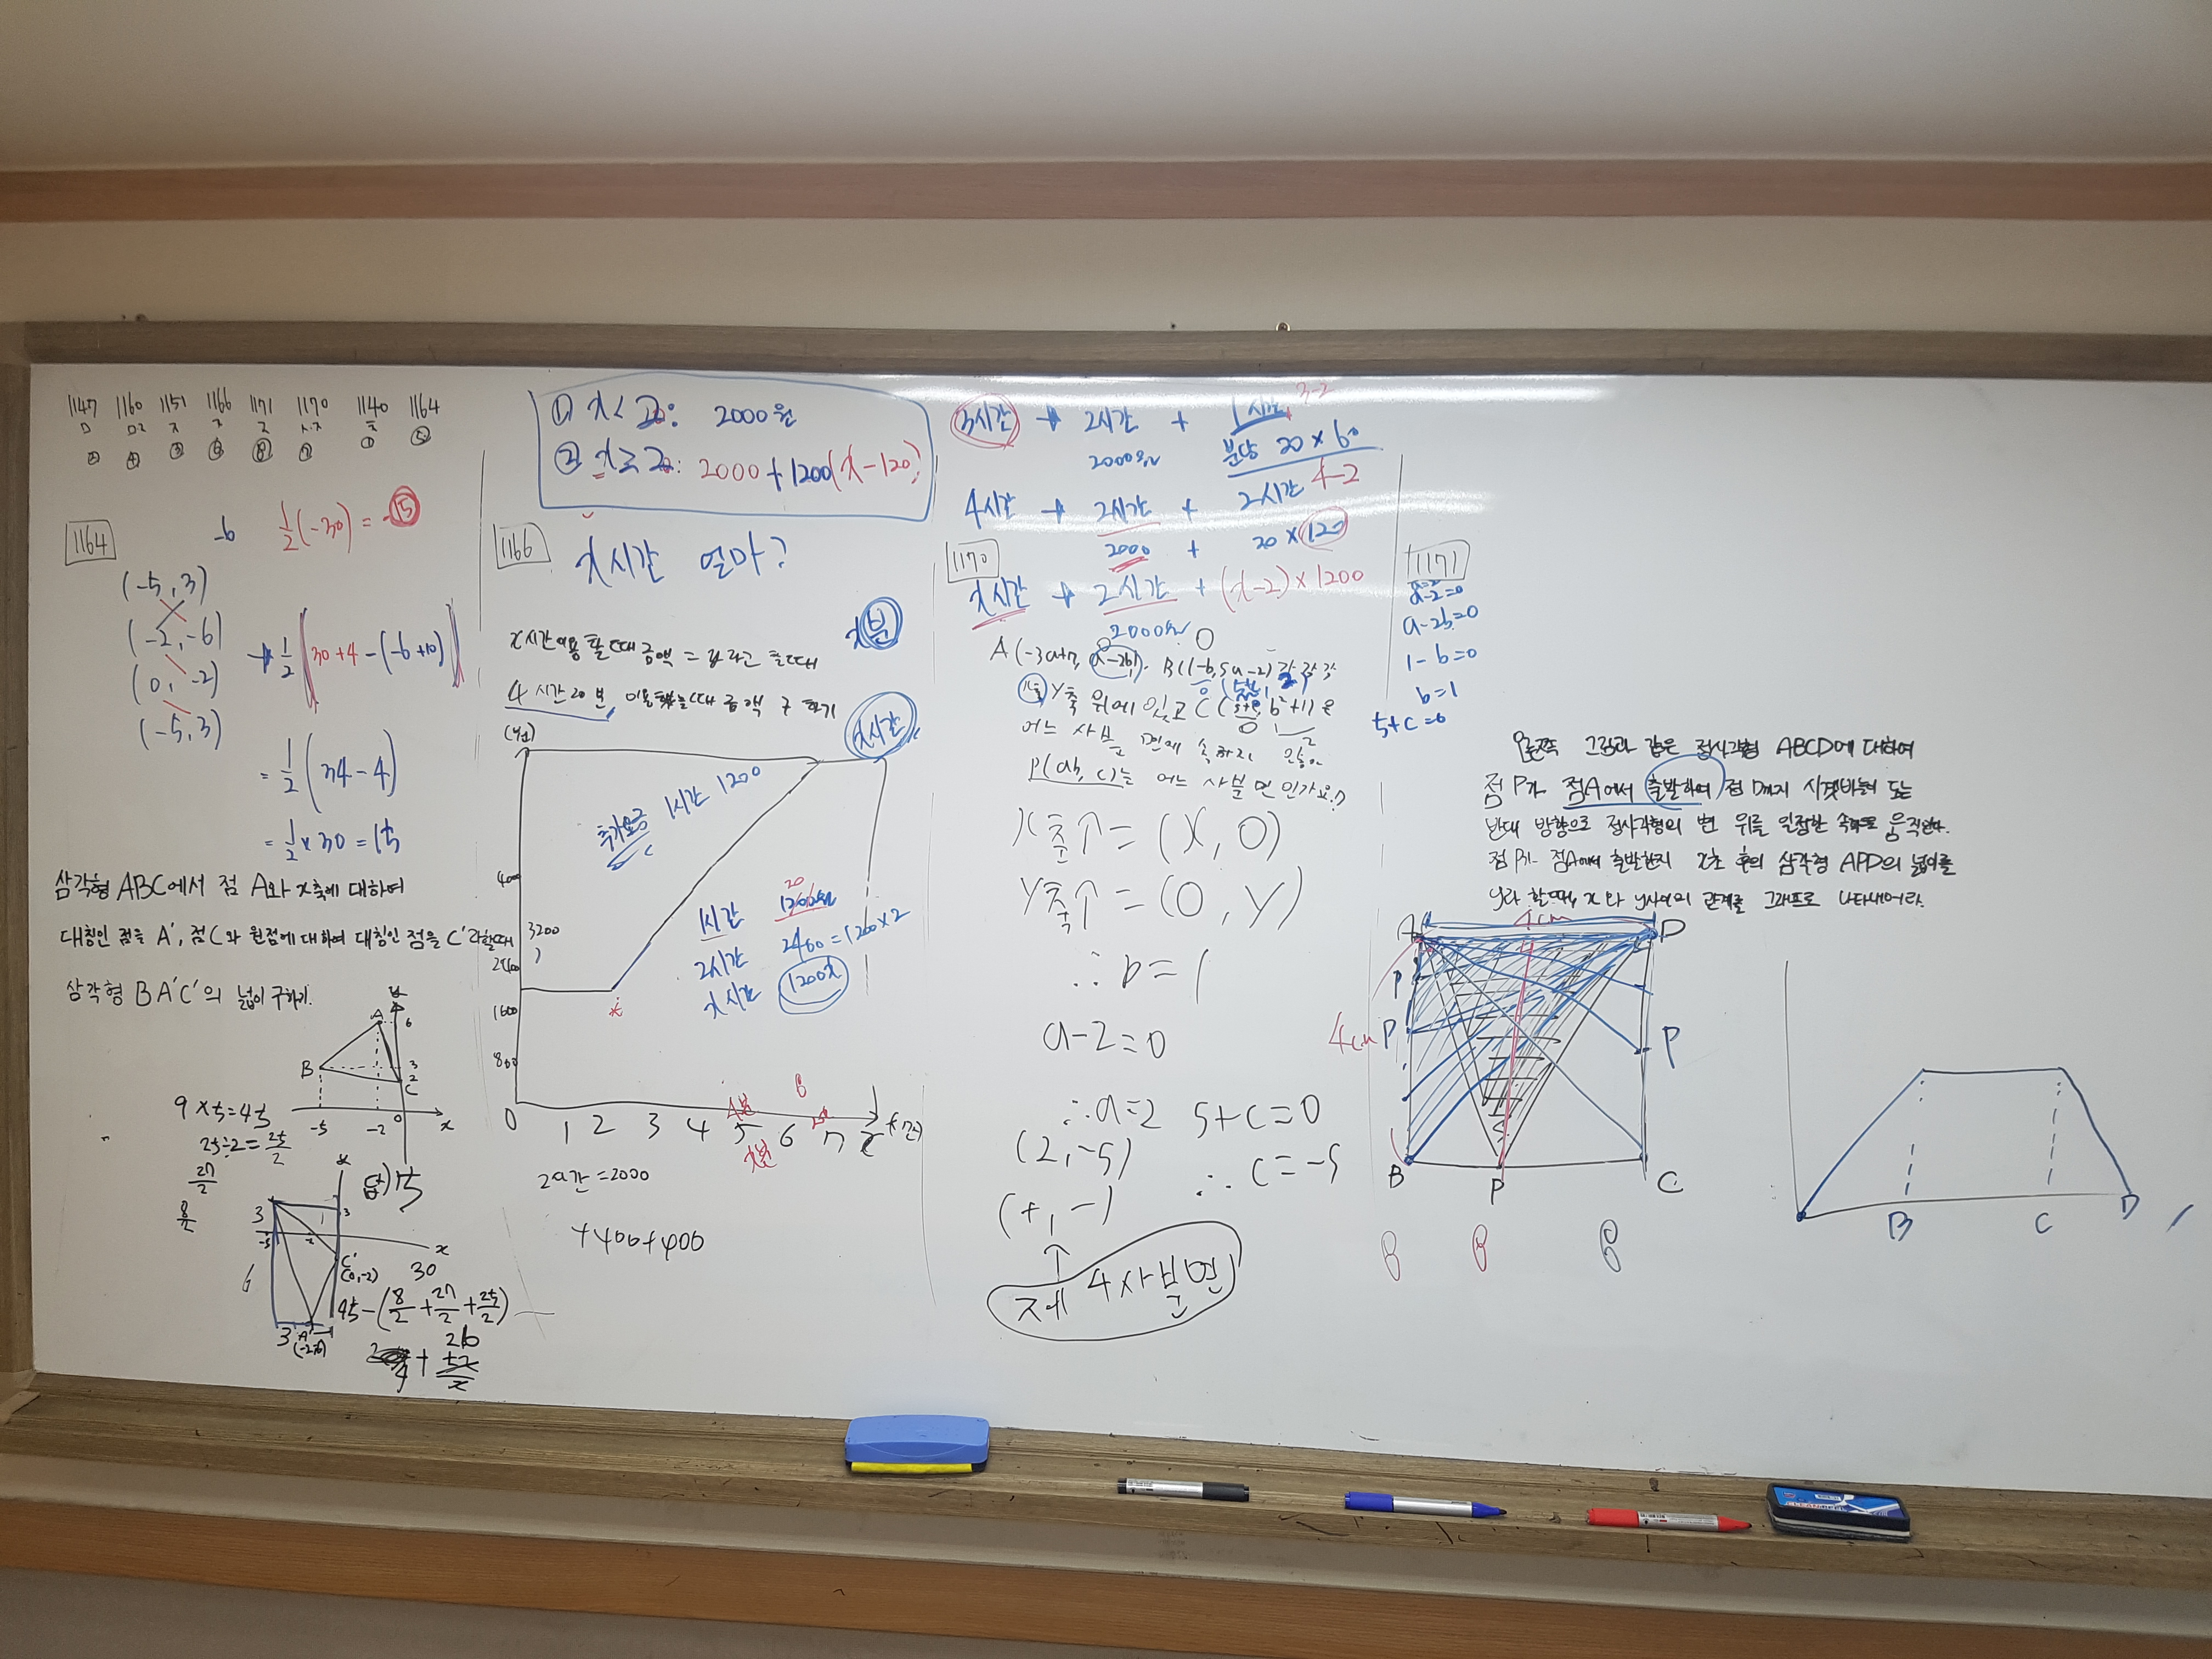 1147 1160 1151 1166 1171 1170 1140 1164
1164
-6
1/2(-30) = -15
(-5, 3)
(-2, -6)
(0, -2)
(-5, 3)
→ 1/2 |30+4-(-6+10)|
= 1/2 (34-4)
= 1/2 × 30 = 15
삼각형 ABC에서 점 A와 x축에 대하여
대칭인 점을 A', 점 C와 원점에 대하여 대칭인 점을 C'라할때
삼각형 BA'C'의 넓이 구하기.
y
A
6
B
3
2
C
-5
-2
0
x
9×5=45
25÷2=25/2
27/2
8/2
답)15
y
3
3
-5
-2
x
6
C'
(0,-2)
30
45-(8/2+27/2+25/2)
3
A'
① x<2: 2000원
② x≥2: 2000+1200(x-120)
1166
x시간 얼마?
x분
x시간 이용할때 금액 = y라고 할때
4시간20분, 이용했을때 금액 구하기
x시간
추가요금 1시간 1200
4000
3200
2400
1600
800
20
1시간 1200원
2시간 2400=1200×2
x시간 1200x
0 1 2 3 4 5 6 7
x분
2시간=2000
+400+400
3-2
3시간 → 2시간 + 1시간
2000원
분당 20×60
4시간 → 2시간 + 2시간 4-2
2000 + 20×120
1170
x시간 → 2시간 + (x-2)×1200
2000원
Y축 위에 있고
P(ab, c)는 어느 사분면인가요?
X축 = (X, 0)
Y축 = (0, Y)
∴ b=1
a-2=0
∴ a=2 5+c=0
(2,-5)
∴ c=-5
(+, -)
제 4사분면
1171
a-2=0
a-2b=0
1-b=0
b=1
5+c=0
오른쪽 그림과 같은 정사각형 ABCD에 대하여
점 P가 점A에서 출발하여 점 D까지 시곗바늘이 도는
반대 방향으로 정사각형의 변 위를 일정한 속력으로 움직인다.
점 P가 점A에서 출발한지 x초 후의 삼각형 APD의 넓이를
y라 할때, x와 y사이의 관계를 그래프로 나타내어라.
4cm
A
D
P
P
4cm
P
B
P
C
B
C
D